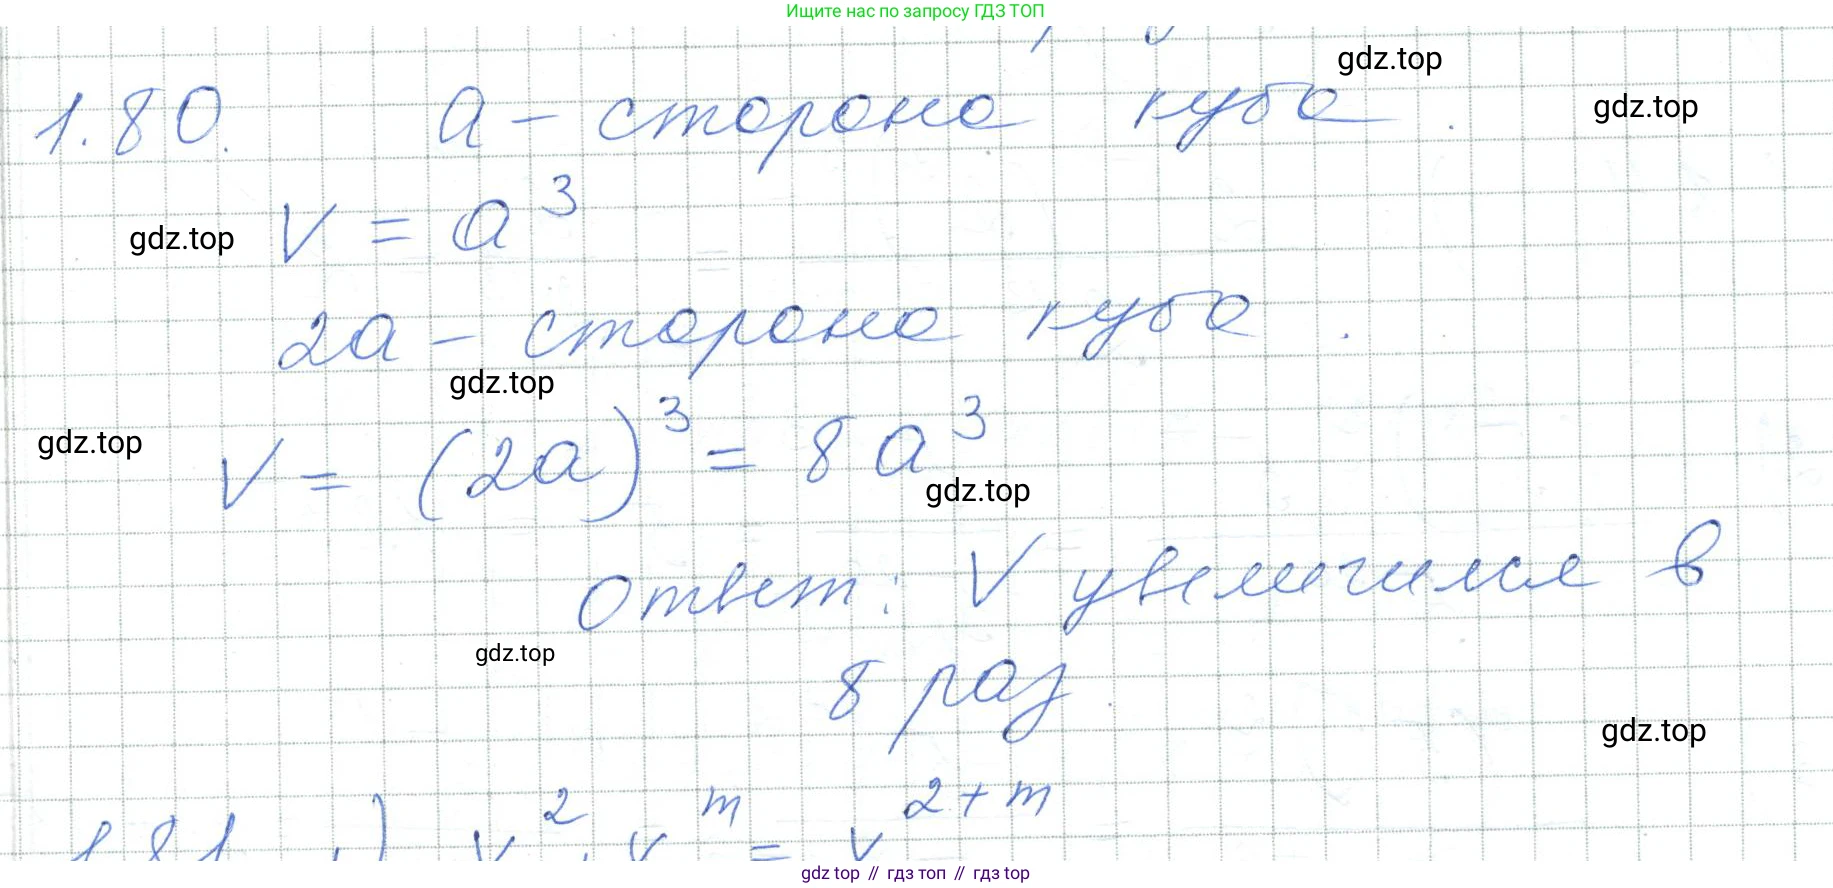 Ищите нас по запросу ГДЗ ТОП
gdz.top
1.80. a - сторона куба.
gdz.top
V = a³
gdz.top
2a - сторона куба.
gdz.top
gdz.top
V = (2a)³ = 8a³
gdz.top
Ответ: V увеличился в
gdz.top
8 раз.
gdz.top
1.81. 1) x² · x^m = x^2+m
gdz.top // гдз топ // гдз top